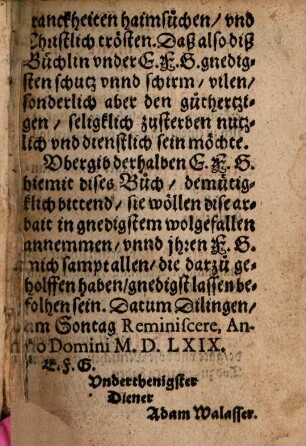 ranckheiten haimsůchen/ vnd
Christlich trösten. Daß also diß
Bůchlin vnder E. F. G. gnedig-
sten schutz vnnd schirm/ vilen/
sonderlich aber den gůthertzi-
gen/ seligklich zusterben nutz-
lich vnd dienstlich sein möchte.
Vbergib derhalben E. F. G.
hiemit dises Bůch/ demütig-
klich bittend/ sie wöllen dise ar-
bait in gnedigstem wolgefallen
annemmen/ vnnd jhren F. G.
mich sampt allen/ die darzů ge-
holffen haben/ gnedigst lassen be-
folhen sein. Datum Dilingen/
am Sontag Reminiscere, An-
no Domini M. D. LXIX.
E. F. G.
Vnderthenigster
Diener
Adam Walasser.